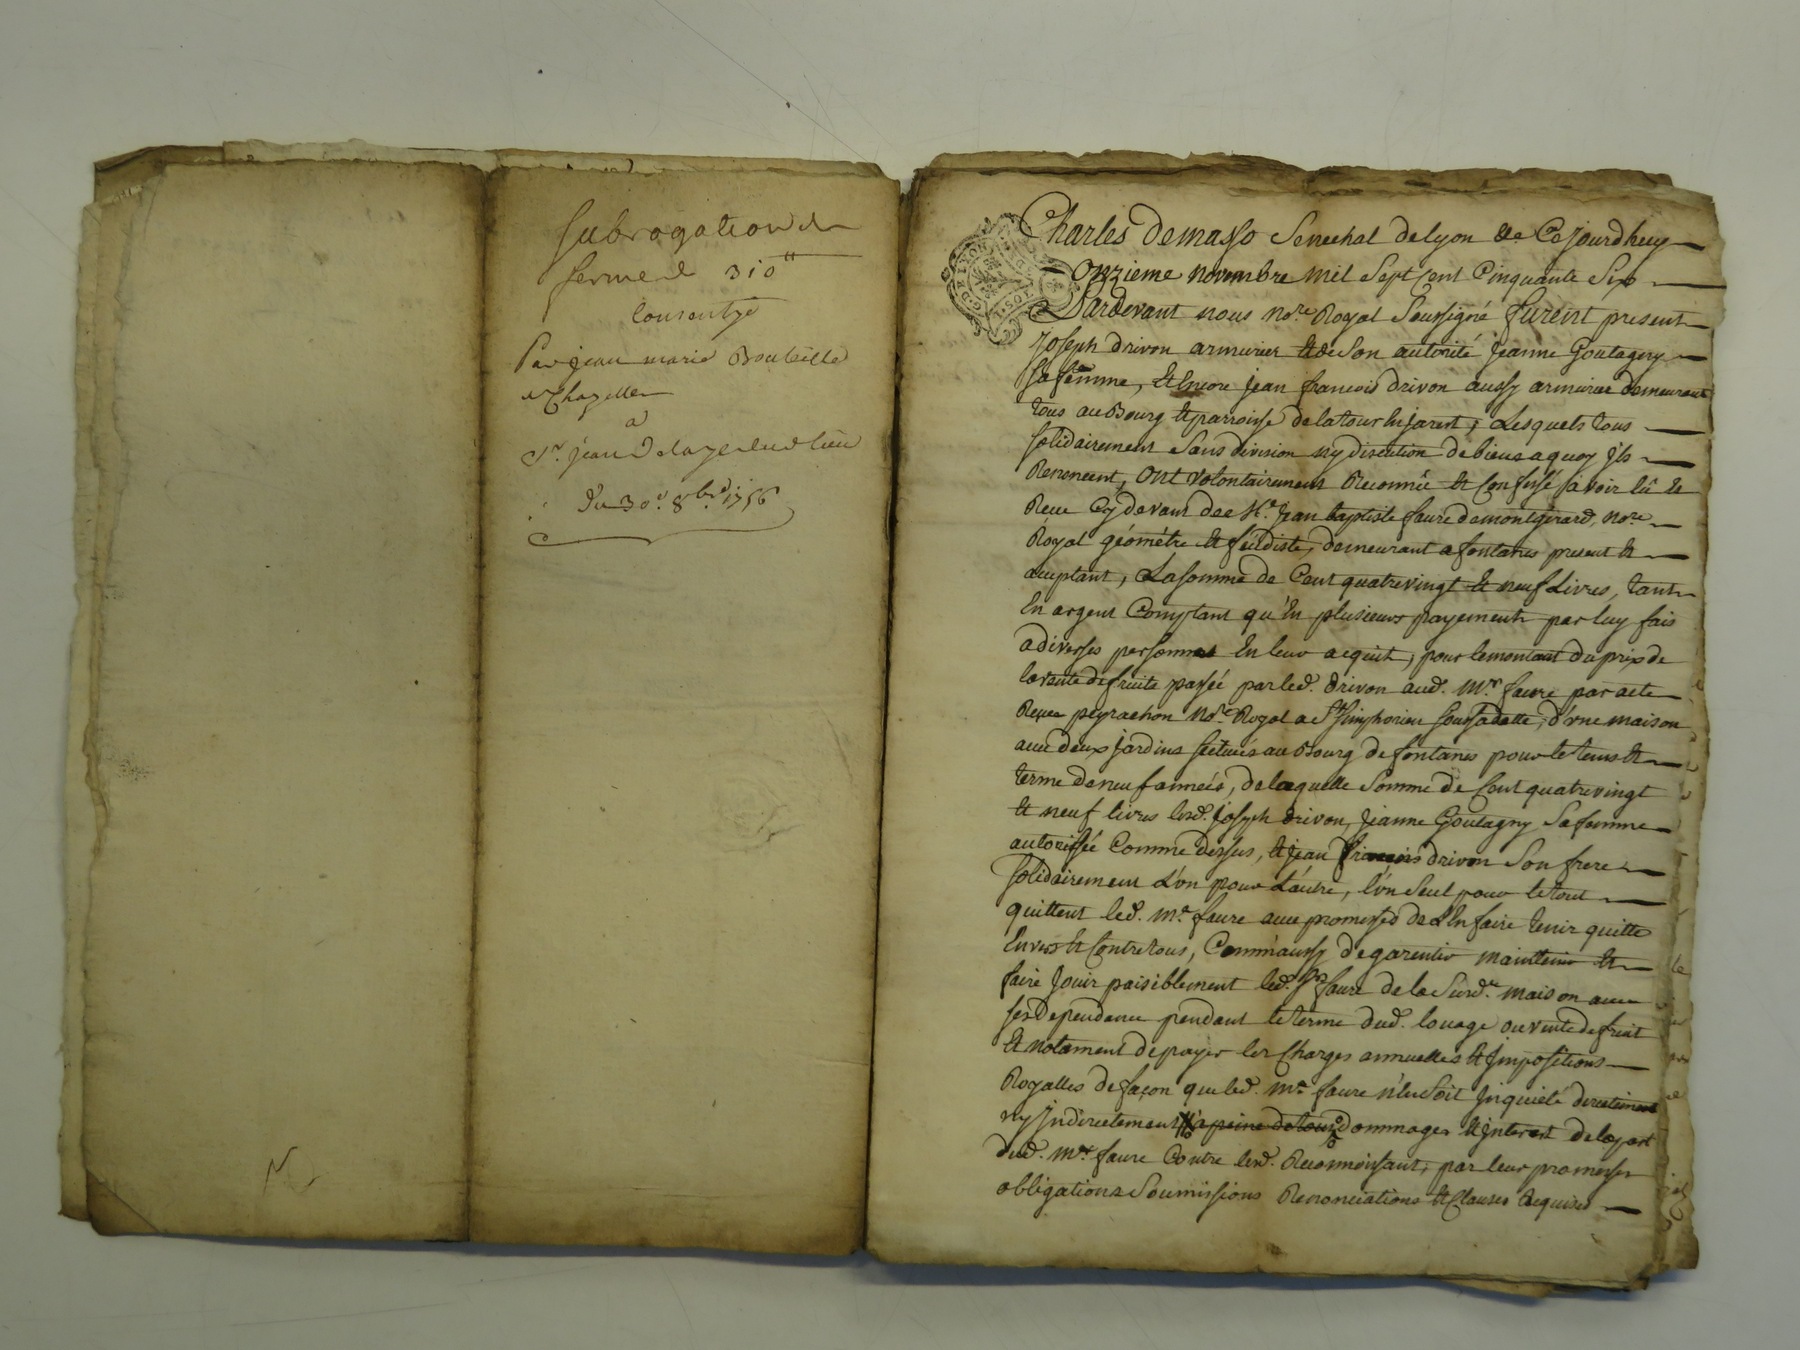 Subrogation de
ferme de 310ᵗᵗ
consentye
Par jean marie Bouteille
de Chazelles
a
Sr. jean Delaye dud. lieu
du 30e. 8bre. 1756
Charles Demasso Senechal de Lyon &a. Cejourdhuy
Onzieme novembre mil Sept Cent Cinquante Six
Pardevant nous nore. Royal Soussigné furent present
Joseph drivon armurier & de Son autorité Jeanne Goutagny
Sa femme, & Encore jean francois drivon aussy armurier demeurant
tous au Bourg & parroisse de la tour En jarest, Lesquels tous
solidairement Sans division ny discution de biens a quoy jls
Renoncent, Ont volontairement Reconnû & Confessé avoir Eû &
Receu Cy devant de Me. Jean baptiste faure de montgirard, nore.
Royal géométre & feûdiste, demeurant a fontanes present &
aceptant, La somme de Cent quatrevingt & neuf Livres, tant
En argent Comptant qu'En plusieurs payements par luy fais
a diverses personnes En leur acquit, pour le montant du prix de
la vente de fruits passée par led. drivon aud. Mre. faure par acte
Receu peyrachon Nore. Royal a St. Simphorien sous sa datte, d'vne maison
avec deux jardins scitués au Bourg de fontanes pour le tems &
terme de neuf années, de laquelle Somme de Cent quatrevingt
& neuf livres lesd. joseph drivon, Jeanne Goutagny Sa femme
autorisée Comme dessus, & jean francois drivon Son frere
Solidairement L'vn pour L'autre, l'vn Seul pour le tout
quittent led. Me. faure avec promesses de L'En faire tenir quitte
Envers & Contre tous, Comm'aussy de garentir maintenir &
faire Jouir paisiblement led. Sr. faure de la Susd.e maison avec
ses dependance pendant le terme dud. louage ou vente de fruit
& notament de payer les Charges annuelles & Jmpositions
Royalles de façon que led. Me. faure n'En Soit Jnquiété directement
ny Jndirectement à peine de tous dommages & Jnterest de la part
dud. Me. faure Contre lesd. Reconnoissants, par leur promesses
obligations Soumissions Renonciations & Clauses Requises